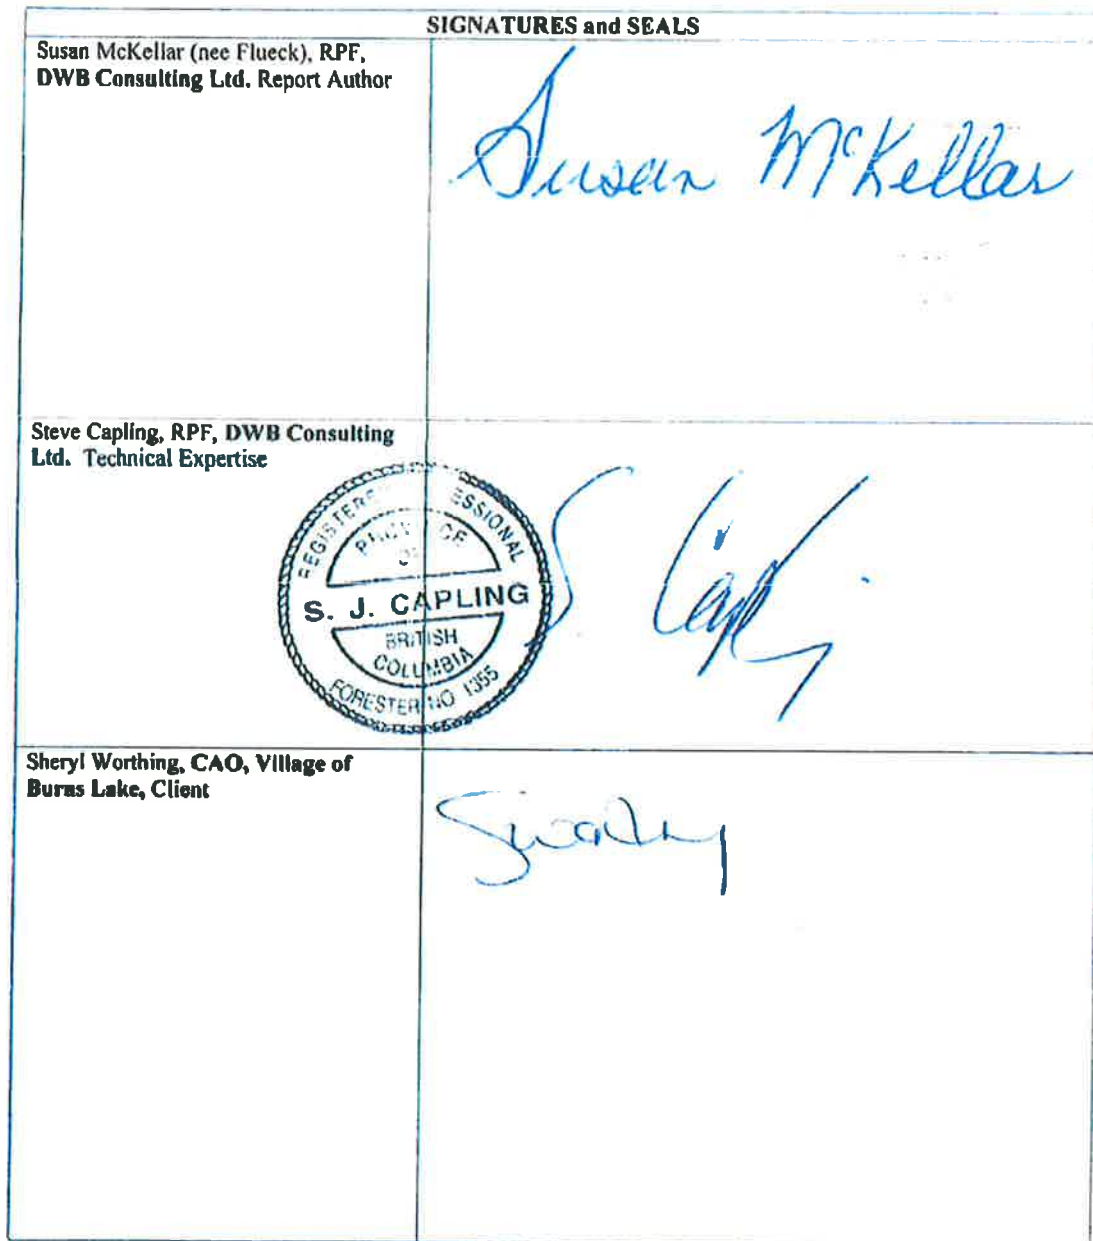 SIGNATURES and SEALS
Susan McKellar (nee Flueck), RPF,
DWB Consulting Ltd. Report Author
Susan McKellar
Steve Capling, RPF, DWB Consulting
Ltd. Technical Expertise
REGISTERED PROFESSIONAL
PROVINCE
OF
S. J. CAPLING
BRITISH
COLUMBIA
FORESTER NO 1355
S. Capling
Sheryl Worthing, CAO, Village of
Burns Lake, Client